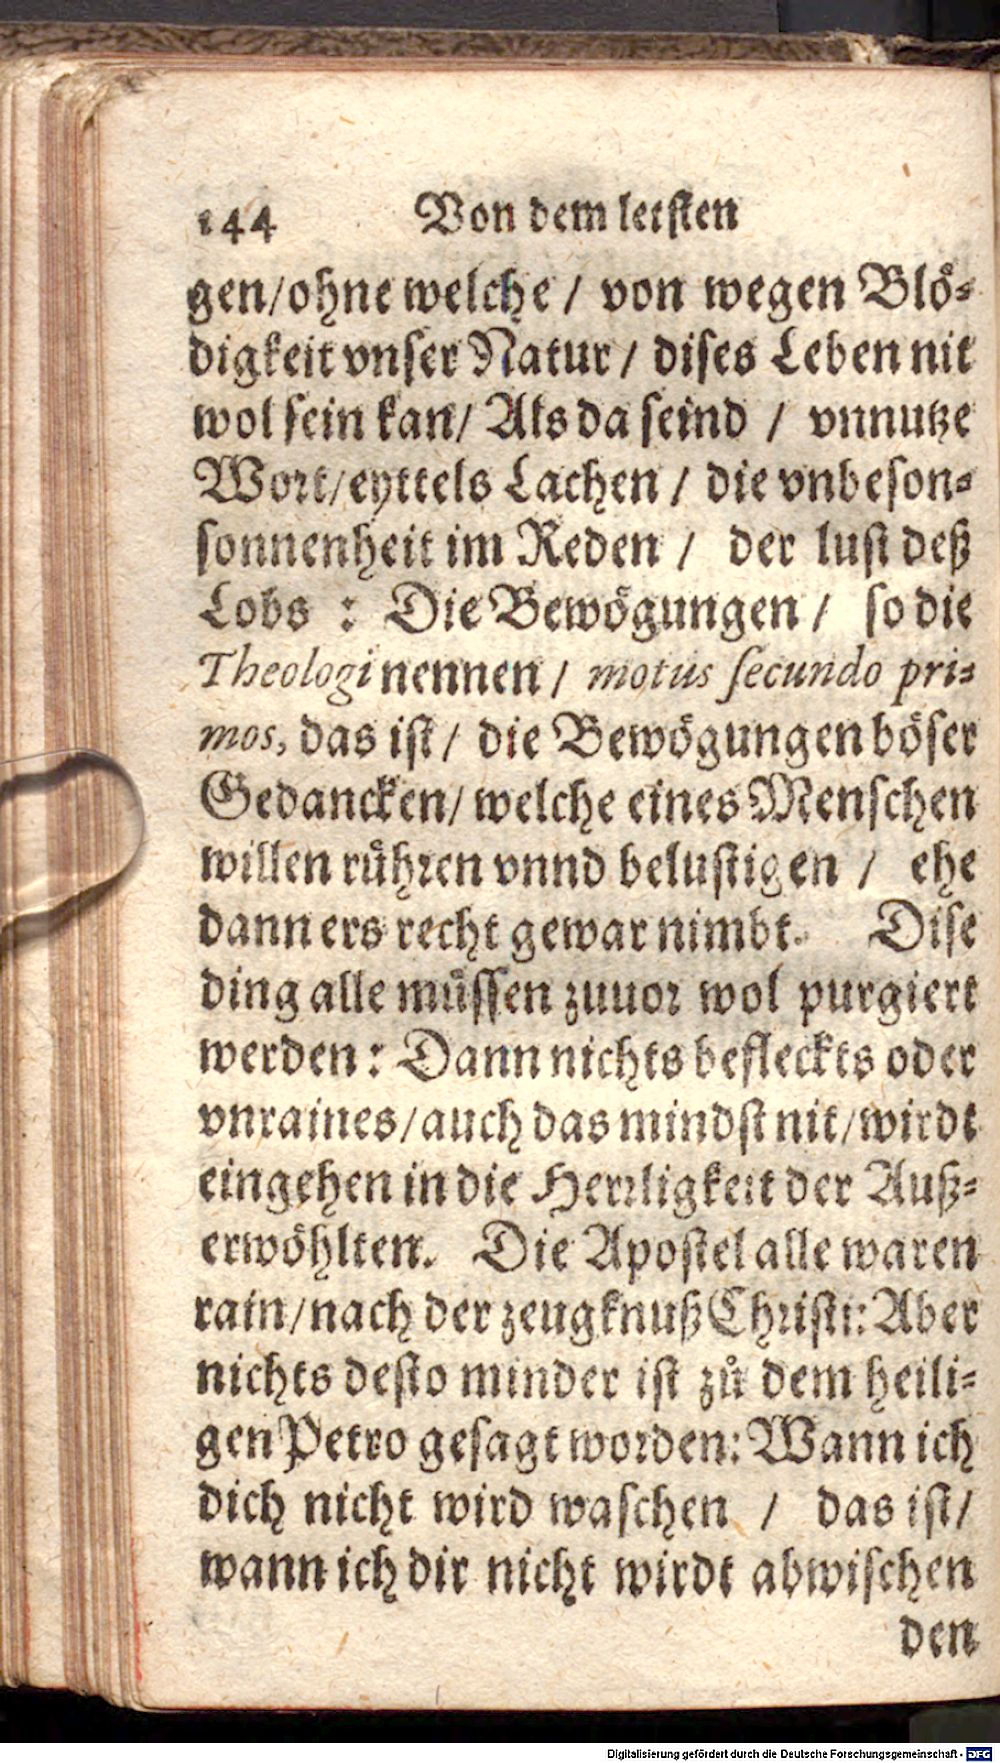 144 Von dem letsten
gen/ohne welche / von wegen Blö⸗
digkeit vnser Natur / dises Leben nit
wol sein kan/ Als da seind / vnnutze
Wort/eyttels Lachen / die vnbeson⸗
sonnenheit im Reden / der lust deß
Lobs : Die Bewögungen / so die
Theologi nennen / motus secundo pri⸗
mos, das ist / die Bewögungen böser
Gedancken/ welche eines Menschen
willen rühren vnnd belustigen / ehe
dann ers recht gewar nimbt. Dise
ding alle müssen zuuor wol purgiert
werden : Dann nichts befleckts oder
vnraines/auch das mindst nit/wirdt
eingehen in die Herrligkeit der Auß⸗
erwöhlten. Die Apostel alle waren
rain/nach der zeugknuß Christi: Aber
nichts desto minder ist zů dem heili⸗
gen Petro gesagt worden: Wann ich
dich nicht wird waschen / das ist/
wann ich dir nicht wirdt abwischen
den
Digitalisierung gefördert durch die Deutsche Forschungsgemeinschaft - DFG